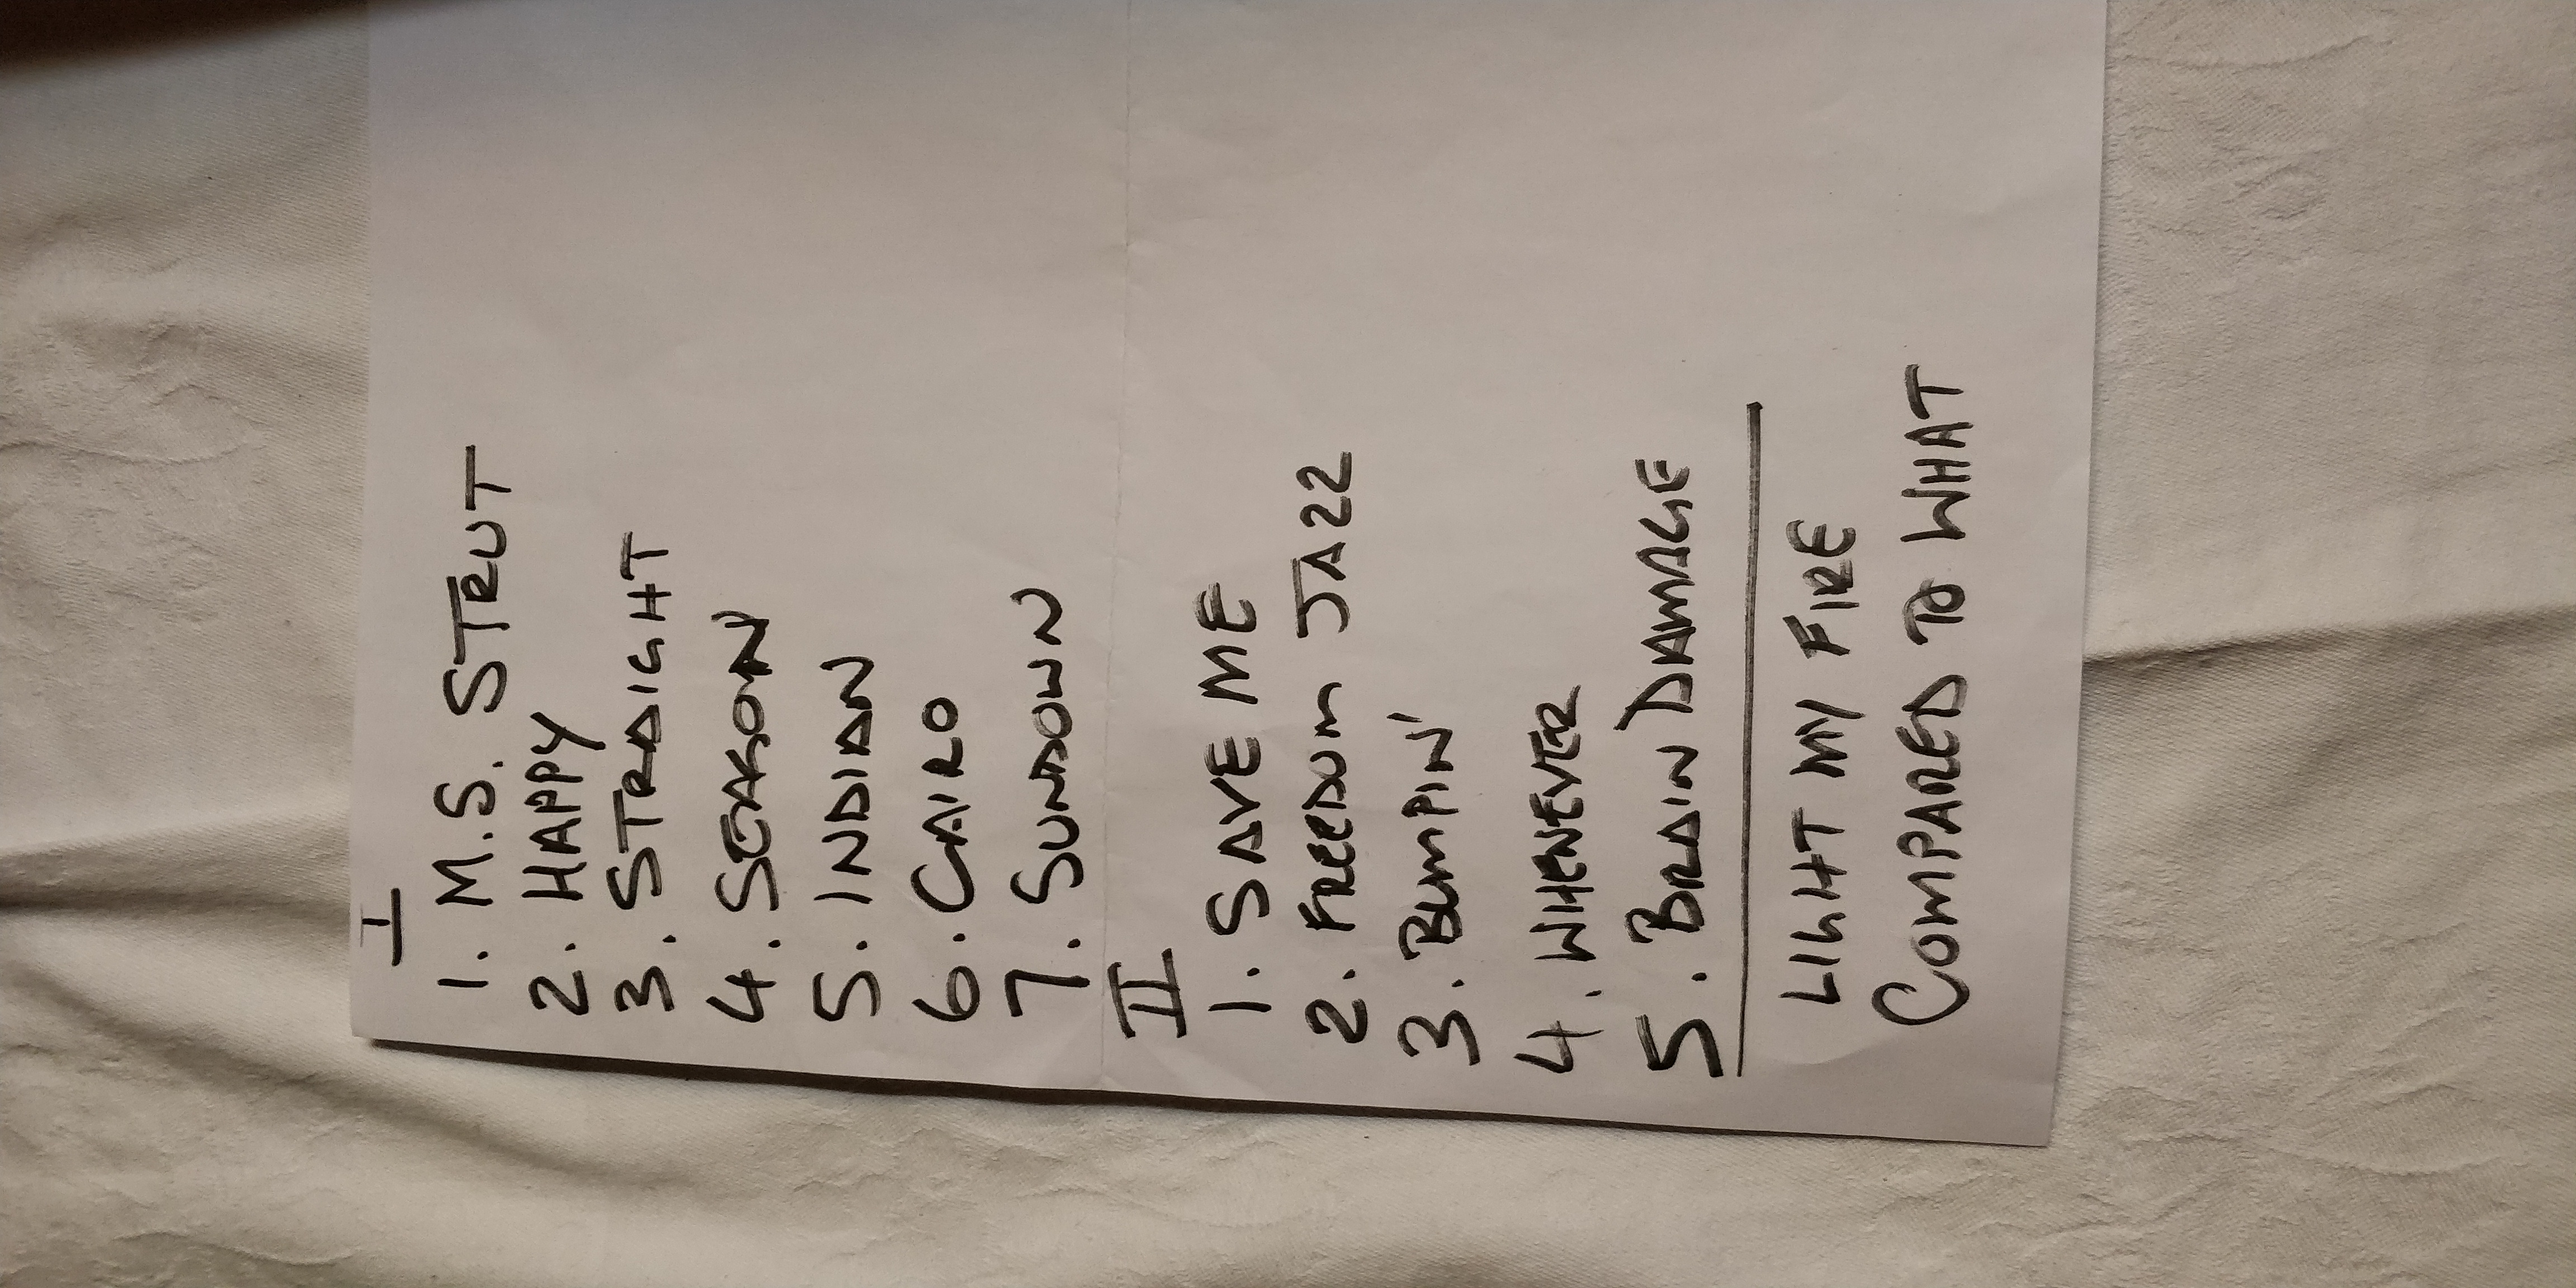 I
1. M.S. STRUT
2. HAPPY
3. STRAIGHT
4. SEASON
5. INDIAN
6. CAIRO
7. SUNDOWN
II
1. SAVE ME
2. FREEDOM JAZZ
3. BUMPIN'
4. WHENEVER
5. BRAIN DAMAGE
LIGHT MY FIRE
COMPARED TO WHAT